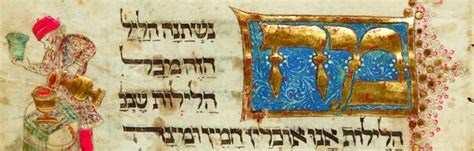 נשתנה הלילה
הזה מכל
הלילות
הלילות אנו אוכלין חמץ ומצה